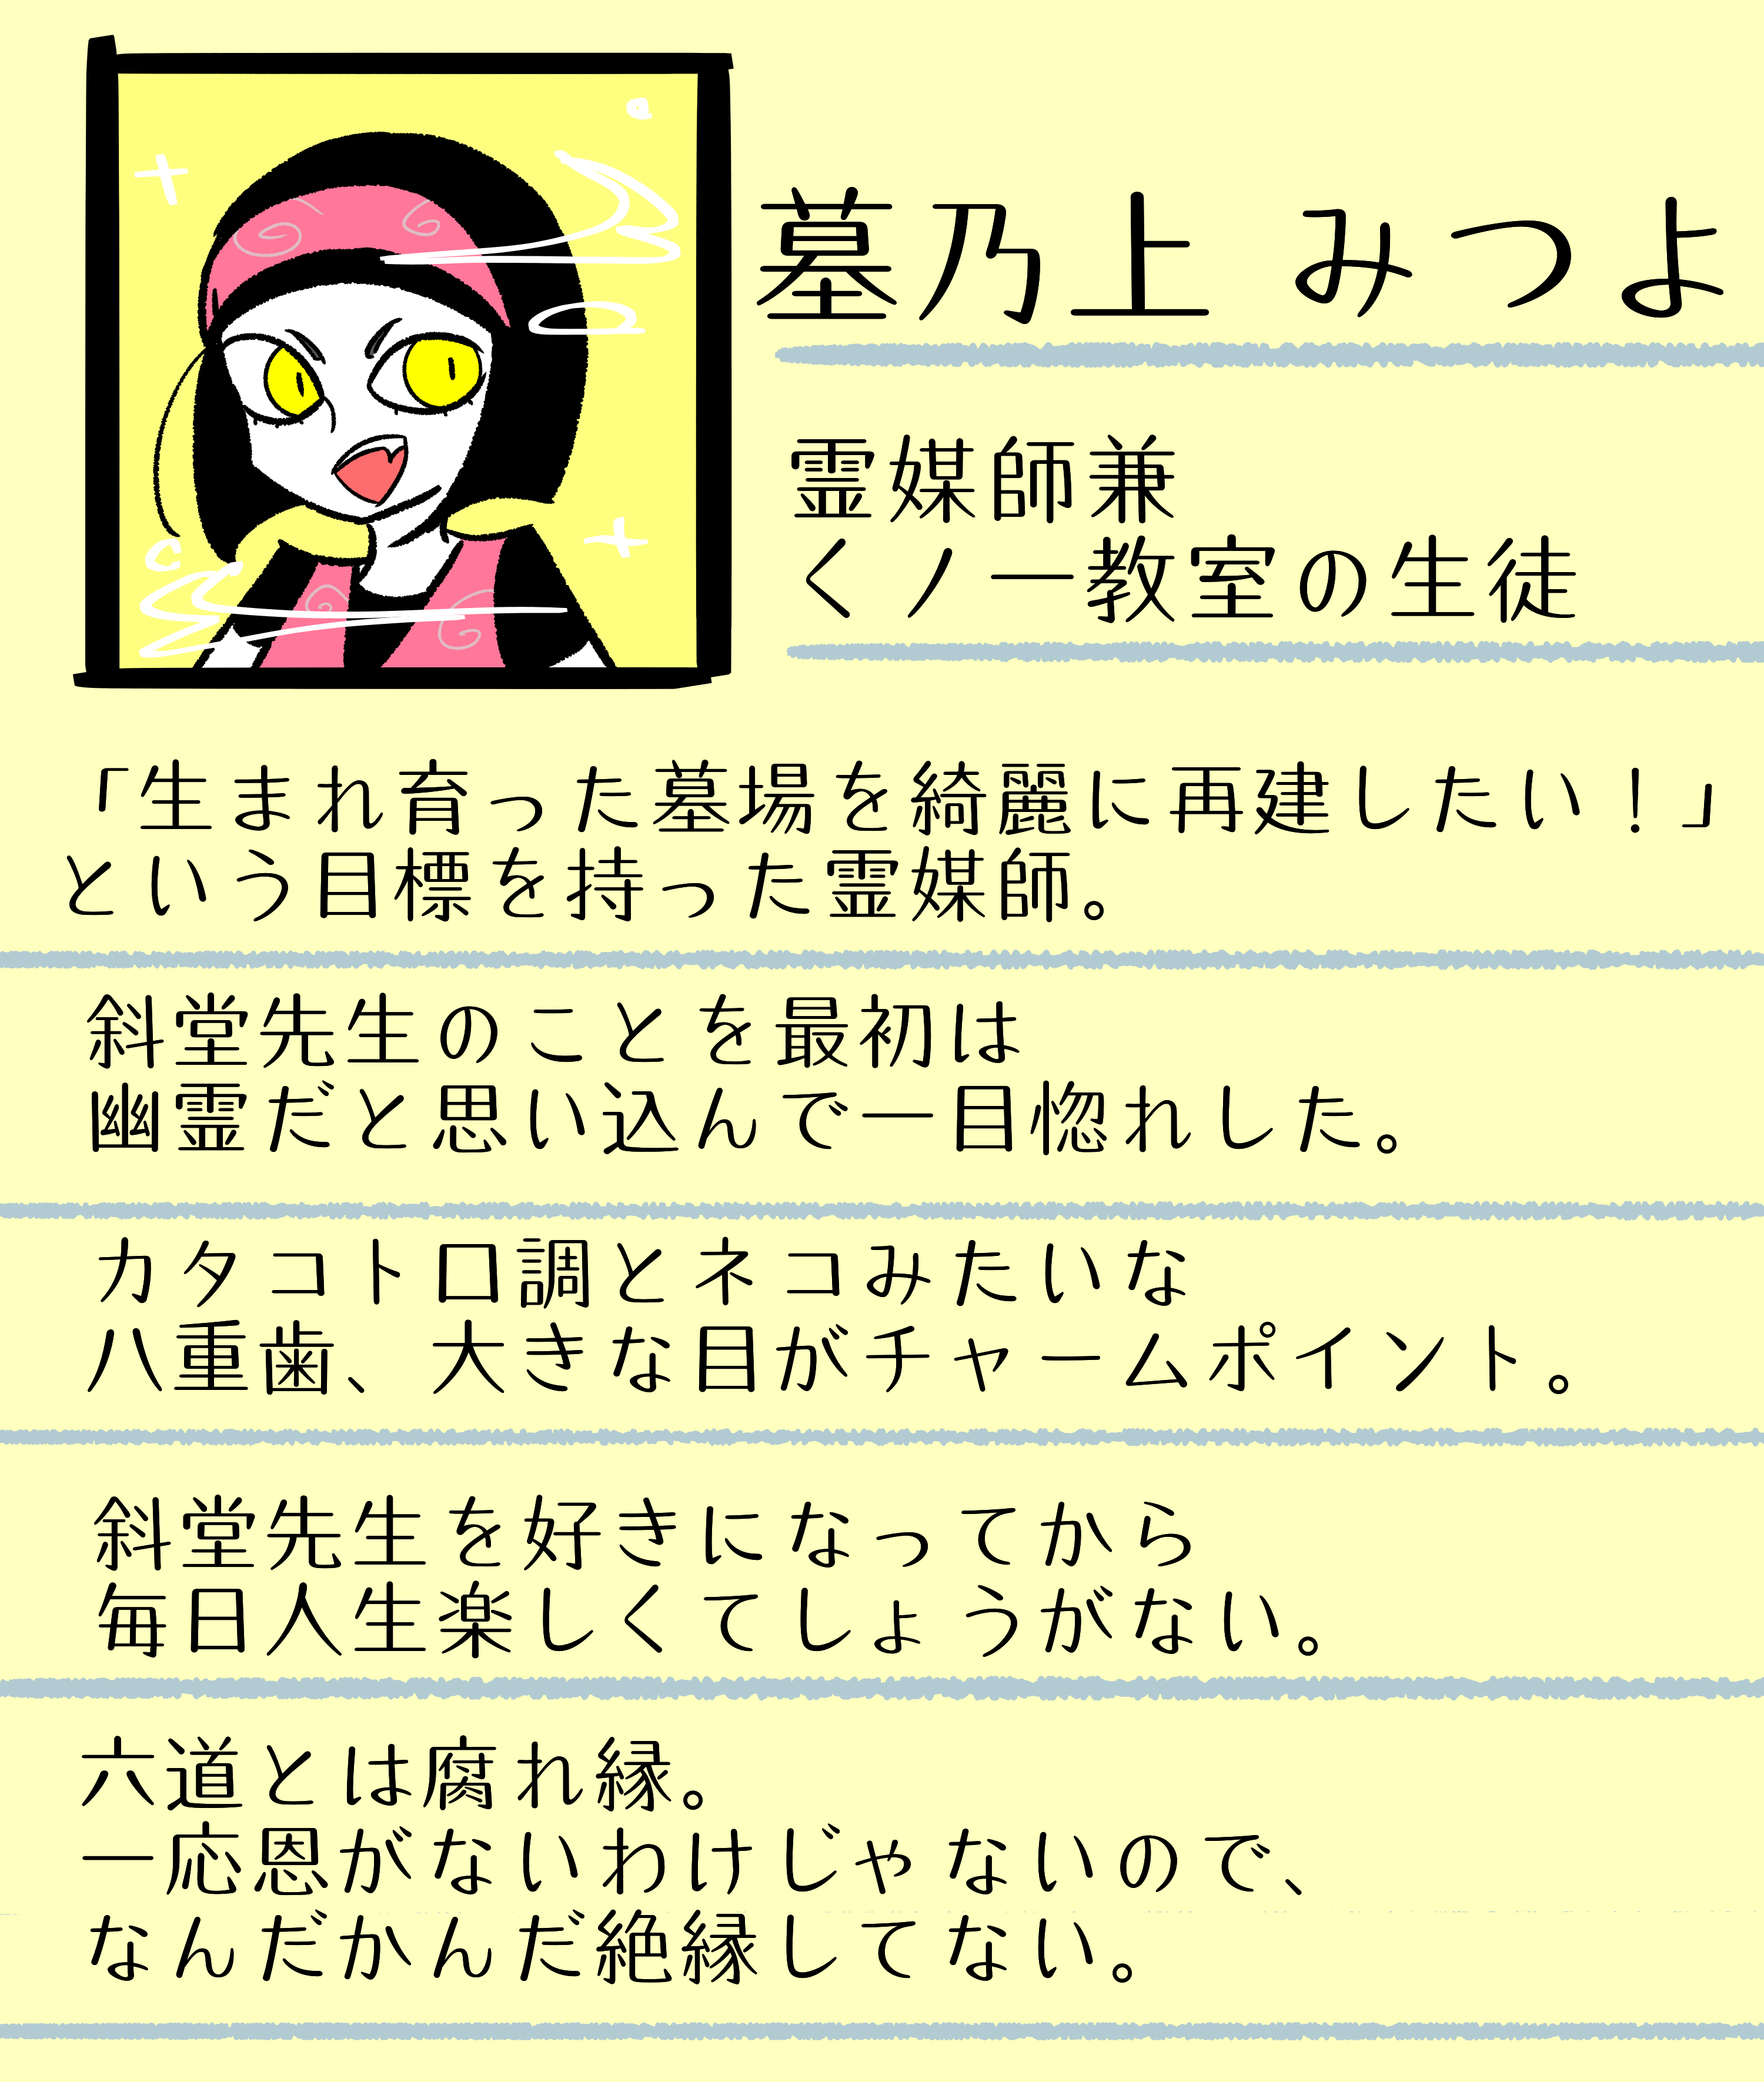 墓乃上 みつよ
霊媒師兼
くノ一教室の生徒
「生まれ育った墓場を綺麗に再建したい！」
という目標を持った霊媒師。
斜堂先生のことを最初は
幽霊だと思い込んで一目惚れした。
カタコト口調とネコみたいな
八重歯、大きな目がチャームポイント。
斜堂先生を好きになってから
毎日人生楽しくてしょうがない。
六道とは腐れ縁。
一応恩がないわけじゃないので、
なんだかんだ絶縁してない。